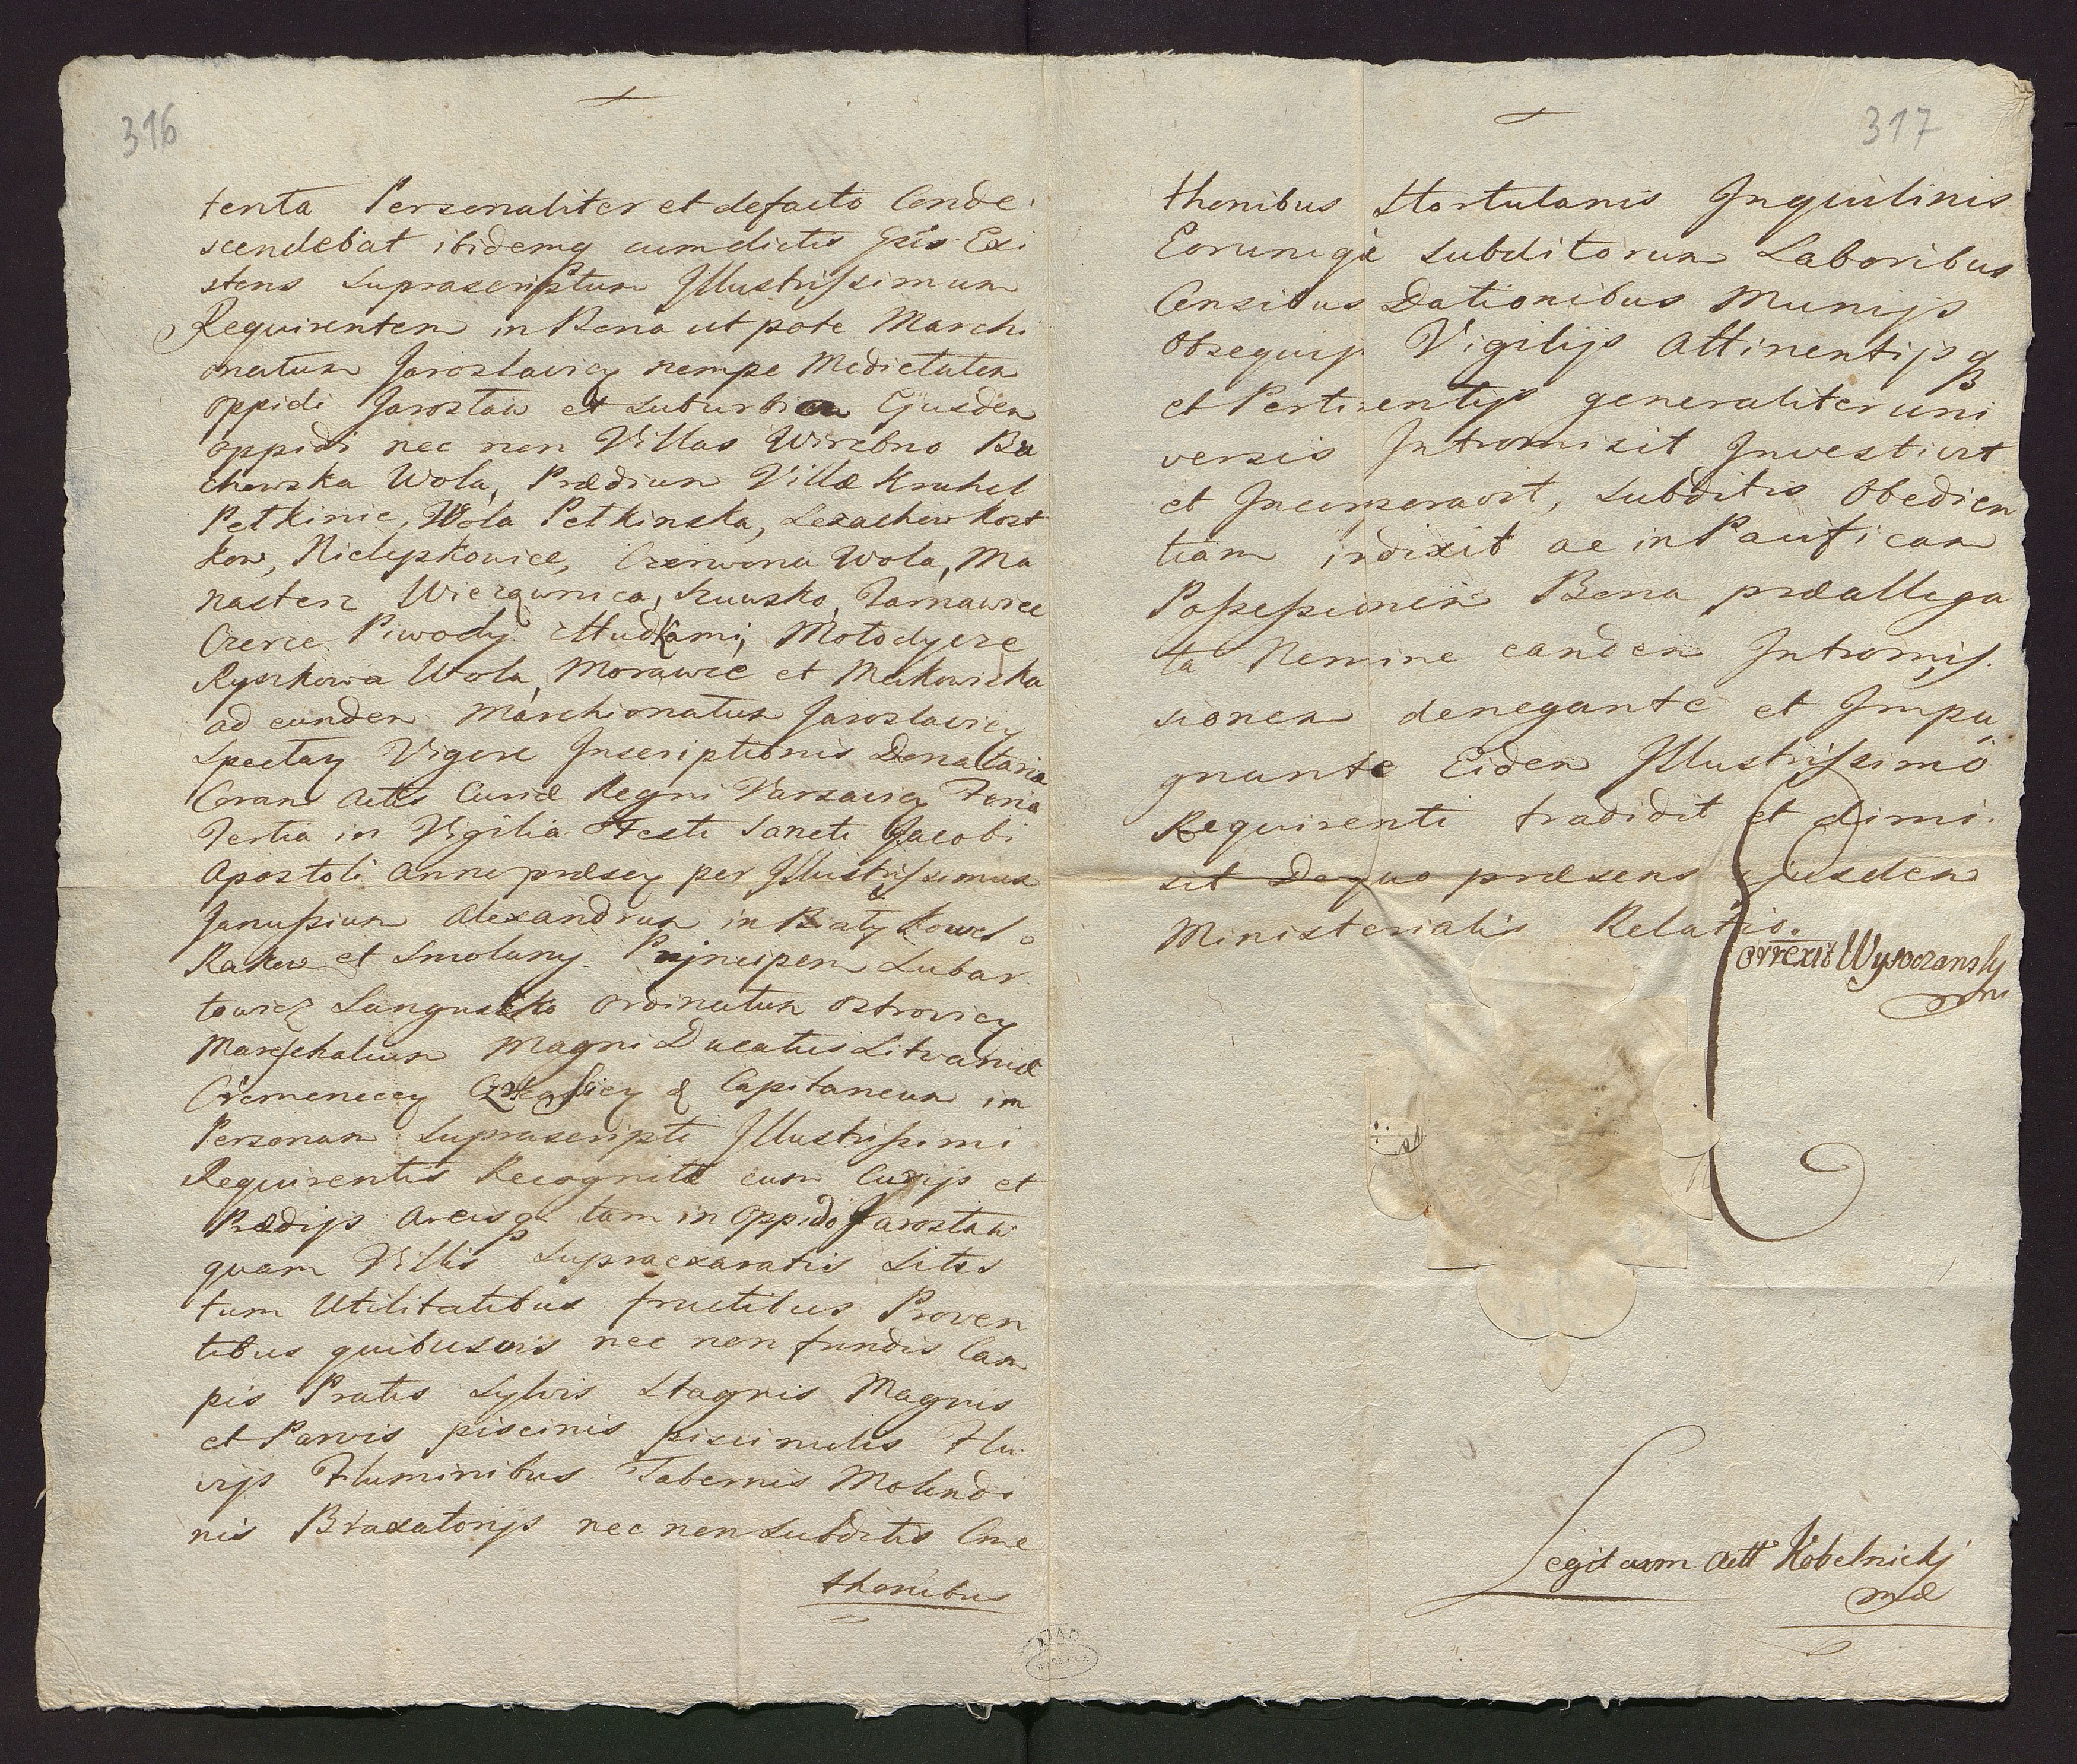 316
tenta Personaliter et defacto Conde
scendebat ibidemq cum dictis Gñis Exi
stens Suprascriptum Illustrissimum
Requirentem in Bona ut pote Marchi
onatum Jaroslavien nempe Medietatem
Oppidi Jarosław et Suburbium Ejusdem
Oppidi nec non Villas Wirzbno Bo
chowska Wola, Prædium Villæ Kruhel
Petkinie, Wola Petkinska, Lezachow Kost
kow, Nielepkowice, Czerwona Wola, Ma
nasterz Wiezownica, Szuwsko, Tarnawice
Czerce Piwody Mudkami, Mołodycze
Ryszkowa Wola, Morawce et Makowiska
ad eundem Marchionatum Jaroslavien
Spectan Vigore Inscriptionis Donatoria
Coram Actis Curiæ Regni Varsavien Feria
Tertia in Vigilia Festi Sancti Jacobi
Apostoli Anni præsen per Illustrissimum
Janussium Alexandrum in Biały Kowel
Rakow et Smolany Principem Lubar
towicz Sangusko Ordinatum Ostrovien
Marschalcum Magni Ducatus Litvaniæ
Cremenecen & Capitaneum in
Personam Suprascripti Illustrissimi
Requirentis Recognitæ cum Curijs et
Prædijs Arcisq tam in Oppido Jarosław
quam Villis Supraexaratis Sitis
tum Utilitatibus fructibus Proven
tibus quibusvis nec non fundis Cam
pis Pratis Sylvis Stagnis Magnis
et Parvis piscinis piscinulis Flu
vijs Fluminibus Tabernis Molendi
nis Braxatorijs nec non Subditis Cme
thonibus
317
thonibus Hortulanis Inquilinis
Eorumque Subditorum Laboribus
Censibus Dationibus Munijs
Obsequijs Vigilijs Attinentijsq
et Pertinentijs generaliter uni
versis Intromisit Investivit
et Incorporavit, Subditis Obedien
tiam indixit ac in Pacificam
Possessionem Bona præallega
ta Nemine eandem Intromis
sionem denegante et Impu
gnante Eidem Illustrissimo
Requirenti tradidit et dimi
sit De quo præsens ejusdem
Ministerialis Relatio.
Correxit Wysoczansky
mm
Legit cum Actt Kobelnickj